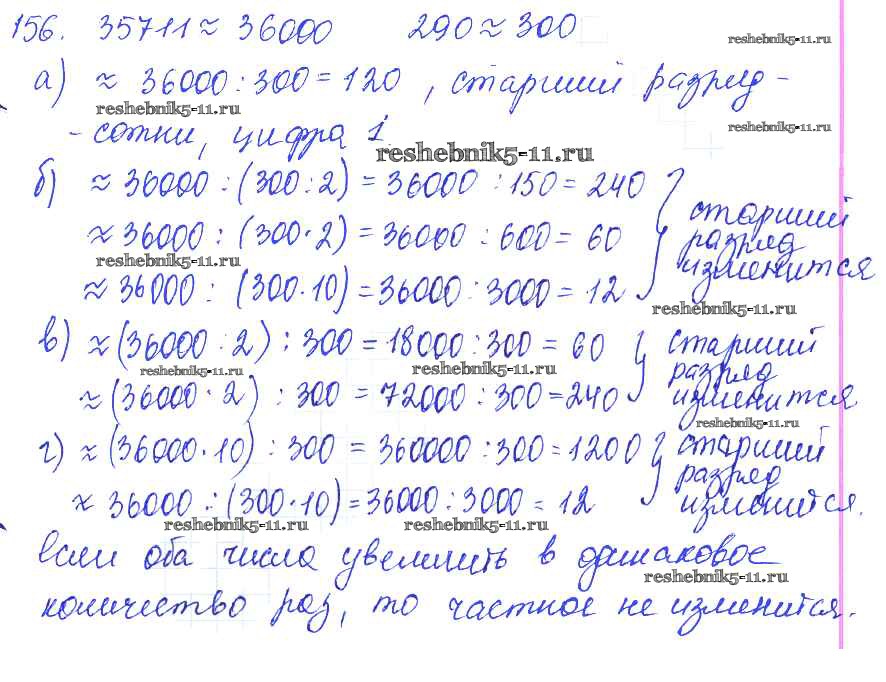 156. 35711 ≈ 36000 290 ≈ 300
reshebnik5-11.ru
а) ≈ 36000 : 300 = 120 , старший разряд -
reshebnik5-11.ru
- сотни, цифра 1.
reshebnik5-11.ru
reshebnik5-11.ru
б) ≈ 36000 : (300 : 2) = 36000 : 150 = 240
≈ 36000 : (300 · 2) = 36000 : 600 = 60
≈ 36000 : (300 · 10) = 36000 : 3000 = 12
старший
разряд
изменится
reshebnik5-11.ru
reshebnik5-11.ru
в) ≈ (36000 : 2) : 300 = 18000 : 300 = 60
≈ (36000 · 2) : 300 = 72000 : 300 = 240
старший
разряд
изменится
reshebnik5-11.ru
reshebnik5-11.ru
reshebnik5-11.ru
г) ≈ (36000 · 10) : 300 = 360000 : 300 = 1200
≈ 36000 : (300 · 10) = 36000 : 3000 = 12
старший
разряд
изменится.
reshebnik5-11.ru
reshebnik5-11.ru
Если оба числа увеличить в одинаковое
reshebnik5-11.ru
количество раз, то частное не изменится.